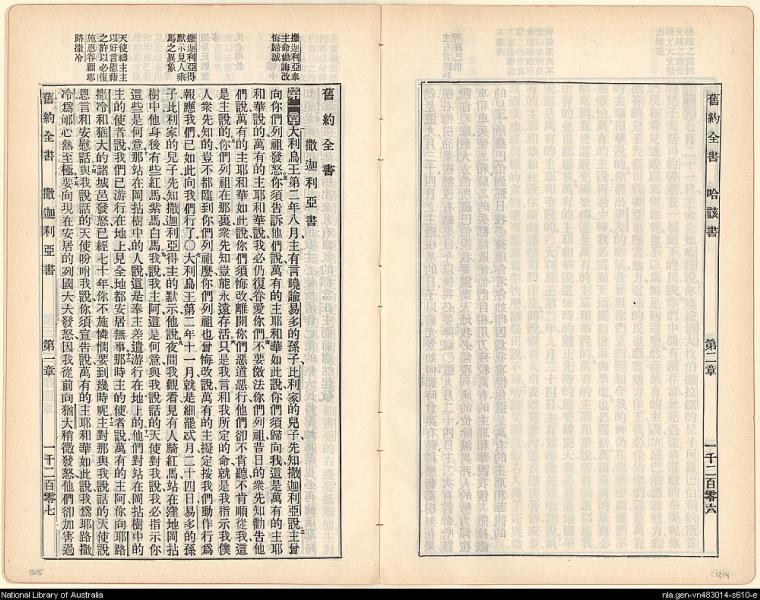 舊約全書 哈該書 第二章 一千二百零六
舊約全書
撒迦利亞書
撒迦利亞奉
主命勸誨改
悔歸誠
第一章大利烏王第二年八月主有言曉諭易多的孫子比利家的兒子先知撒迦利亞說主曾
向你們列祖發怒你須告訴他們說萬有的主耶和華如此說你們須歸向我這是萬有的主耶
和華說的萬有的主耶和華說我必仍復眷愛你們不要傚法你們列祖昔日的衆先知勸告他
們說萬有的主耶和華如此說你們須悔改離開你們惡道惡行他們卻不肯聽不肯順從我這
是主說的你們列祖在那裏衆先知豈能永遠存活只是我言和我所定的命就是我指示我僕
人衆先知的豈不都臨到你們列祖麼你們列祖也曾悔改說萬有的主擬定按我們動作行爲
撒迦利亞得
默示見人乘
馬之異象
報應我們已如此向我們行了〇大利烏王第二年十一月就是細罷忒月二十四日易多的孫
子比利家的兒子先知撒迦利亞得主的默示他說夜間我觀看見有人騎紅馬站在窪地岡拈
樹中他身後有些紅馬紫馬白馬我說我主阿這是何意與我說話的天使對我說我必指示你
這些是何意那站在岡拈樹中的人說這是奉主差遣游行在地上的他們對站在岡拈樹中的
天使禱主主
以好言慰藉
之許以必復
施恩眷顧耶
路撒冷
主的使者說我們已游行在地上見全地都安居無事那時主的使者說萬有的主阿你向耶路
撒冷和猶大的諸城邑發怒已經七十年你不施憐憫要到幾時呢主對那與我說話的天使說
恩言和安慰話與我說話的天使吩咐我說你須宣告說萬有的主耶和華如此說我爲耶路撒
冷爲郇心熱至極要向現在安居的列國大大發怒因我從前向猶大稍微發怒他們卻加害過
舊約全書 撒迦利亞書 第一章 一千二百零七
1215
1214
National Library of Australia
nla.gen-vn483014-s610-e